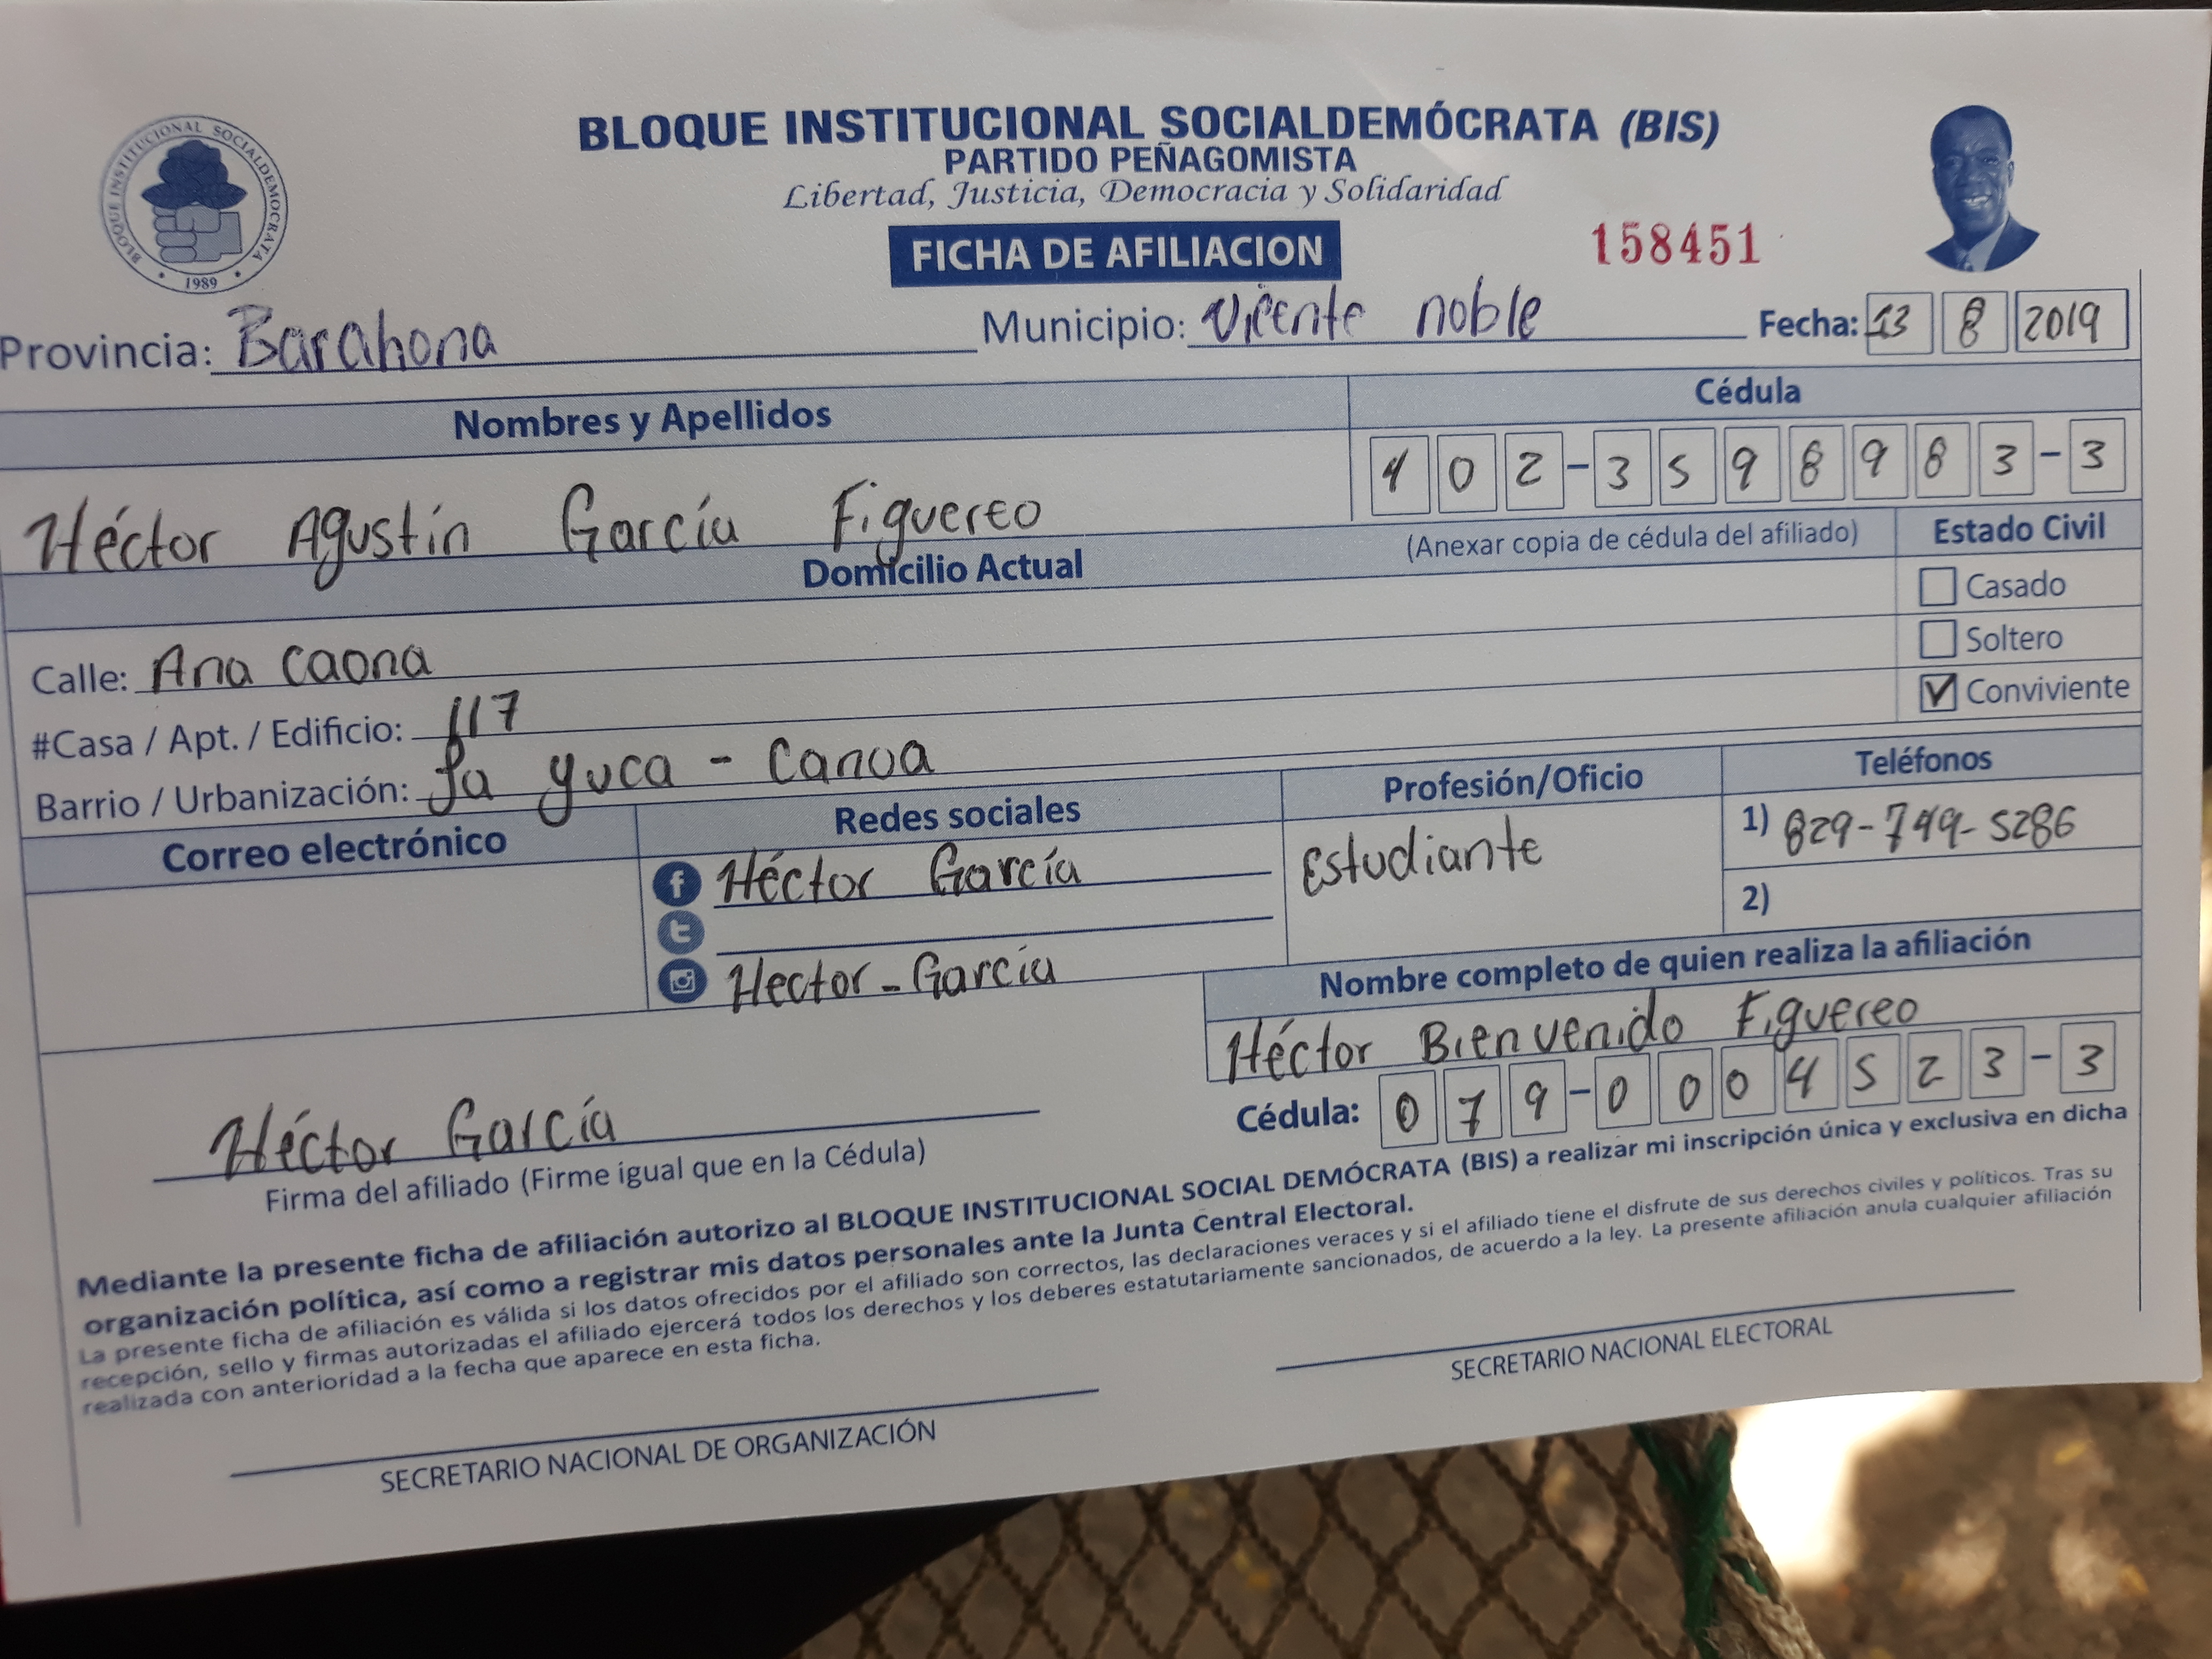 BLOQUE INSTITUCIONAL SOCIALDEMOCRATA
1989
BLOQUE INSTITUCIONAL SOCIALDEMÓCRATA (BIS)
PARTIDO PEÑAGOMISTA
Libertad, Justicia, Democracia y Solidaridad
FICHA DE AFILIACION
158451
Provincia: Barahona Municipio: Vicente noble Fecha: 13 8 2019
Nombres y Apellidos Cédula
Héctor Agustín García Figuereo 402-3598983-3
(Anexar copia de cédula del afiliado) Estado Civil
Domicilio Actual
Casado
Calle: Ana Caona Soltero
#Casa / Apt. / Edificio: 117 Conviviente
Barrio / Urbanización: La yuca - Canoa
Correo electrónico Redes sociales Profesión/Oficio Teléfonos
f Héctor García Estudiante 1) 829-749-5286
t 2)
Hector-García
Nombre completo de quien realiza la afiliación
Héctor Bienvenido Figuereo
Cédula: 079-0004523-3
Héctor García
Firma del afiliado (Firme igual que en la Cédula)
Mediante la presente ficha de afiliación autorizo al BLOQUE INSTITUCIONAL SOCIAL DEMÓCRATA (BIS) a realizar mi inscripción única y exclusiva en dicha
organización política, así como a registrar mis datos personales ante la Junta Central Electoral.
La presente ficha de afiliación es válida si los datos ofrecidos por el afiliado son correctos, las declaraciones veraces y si el afiliado tiene el disfrute de sus derechos civiles y políticos. Tras su
recepción, sello y firmas autorizadas el afiliado ejercerá todos los derechos y los deberes estatutariamente sancionados, de acuerdo a la ley. La presente afiliación anula cualquier afiliación
realizada con anterioridad a la fecha que aparece en esta ficha.
SECRETARIO NACIONAL ELECTORAL
SECRETARIO NACIONAL DE ORGANIZACIÓN